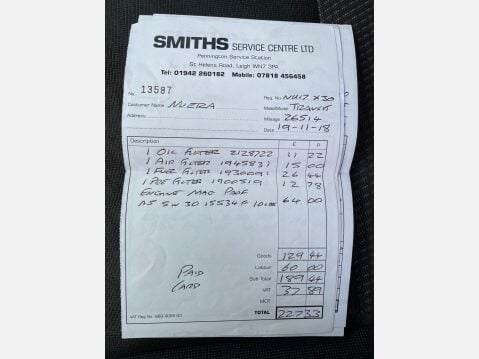 SMITHS SERVICE CENTRE LTD
Pennington Service Station
St Helens Road, Leigh WN7 3PA
Tel: 01942 260182 Mobile: 07818 456458
No. 13587 Reg. No. NU17 X30
Customer Name NUERA Make/Model TRANSIT
Address Mileage 26514
Date 19-11-18
Description £ p
1 OIL FILTER 2128722 11 22
1 AIR FILTER 1945831 15 00
1 FUEL FILTER 1930091 26 44
1 POL FILTER 1900519 12 78
ENGINE MAG
A5 5W30 15534F 64 00
Goods 129 44
Labour 60 00
PAID Sub Total 189 44
CARD VAT 37 89
MOT
VAT Reg No. TOTAL 227 33